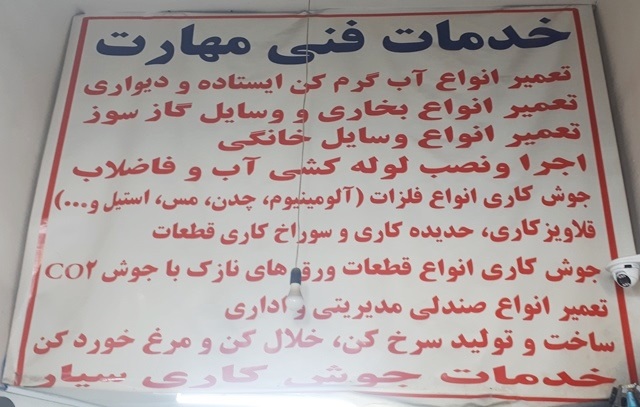 خدمات فنی مهارت
تعمیر انواع آب گرم کن ایستاده و دیواری
تعمیر انواع بخاری و وسایل گاز سوز
تعمیر انواع وسایل خانگی
اجرا ونصب لوله کشی آب و فاضلاب
جوش کاری انواع فلزات (آلومینیوم، چدن، مس، استیل و...)
قلاویزکاری، حدیده کاری و سوراخ کاری قطعات
جوش کاری انواع قطعات ورق های نازک با جوش CO۲
تعمیر انواع صندلی مدیریتی و اداری
ساخت و تولید سرخ کن، خلال کن و مرغ خورد کن
خدمات جوش کاری سیار